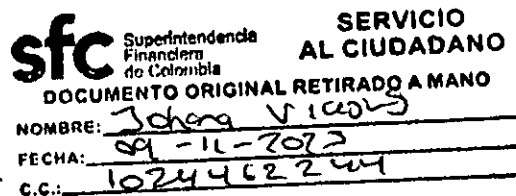 sfc Superintendencia Financiera de Colombia
SERVICIO AL CIUDADANO
DOCUMENTO ORIGINAL RETIRADO A MANO
NOMBRE: Johana
FECHA: 09-11-2023
C.C.: 1024462244